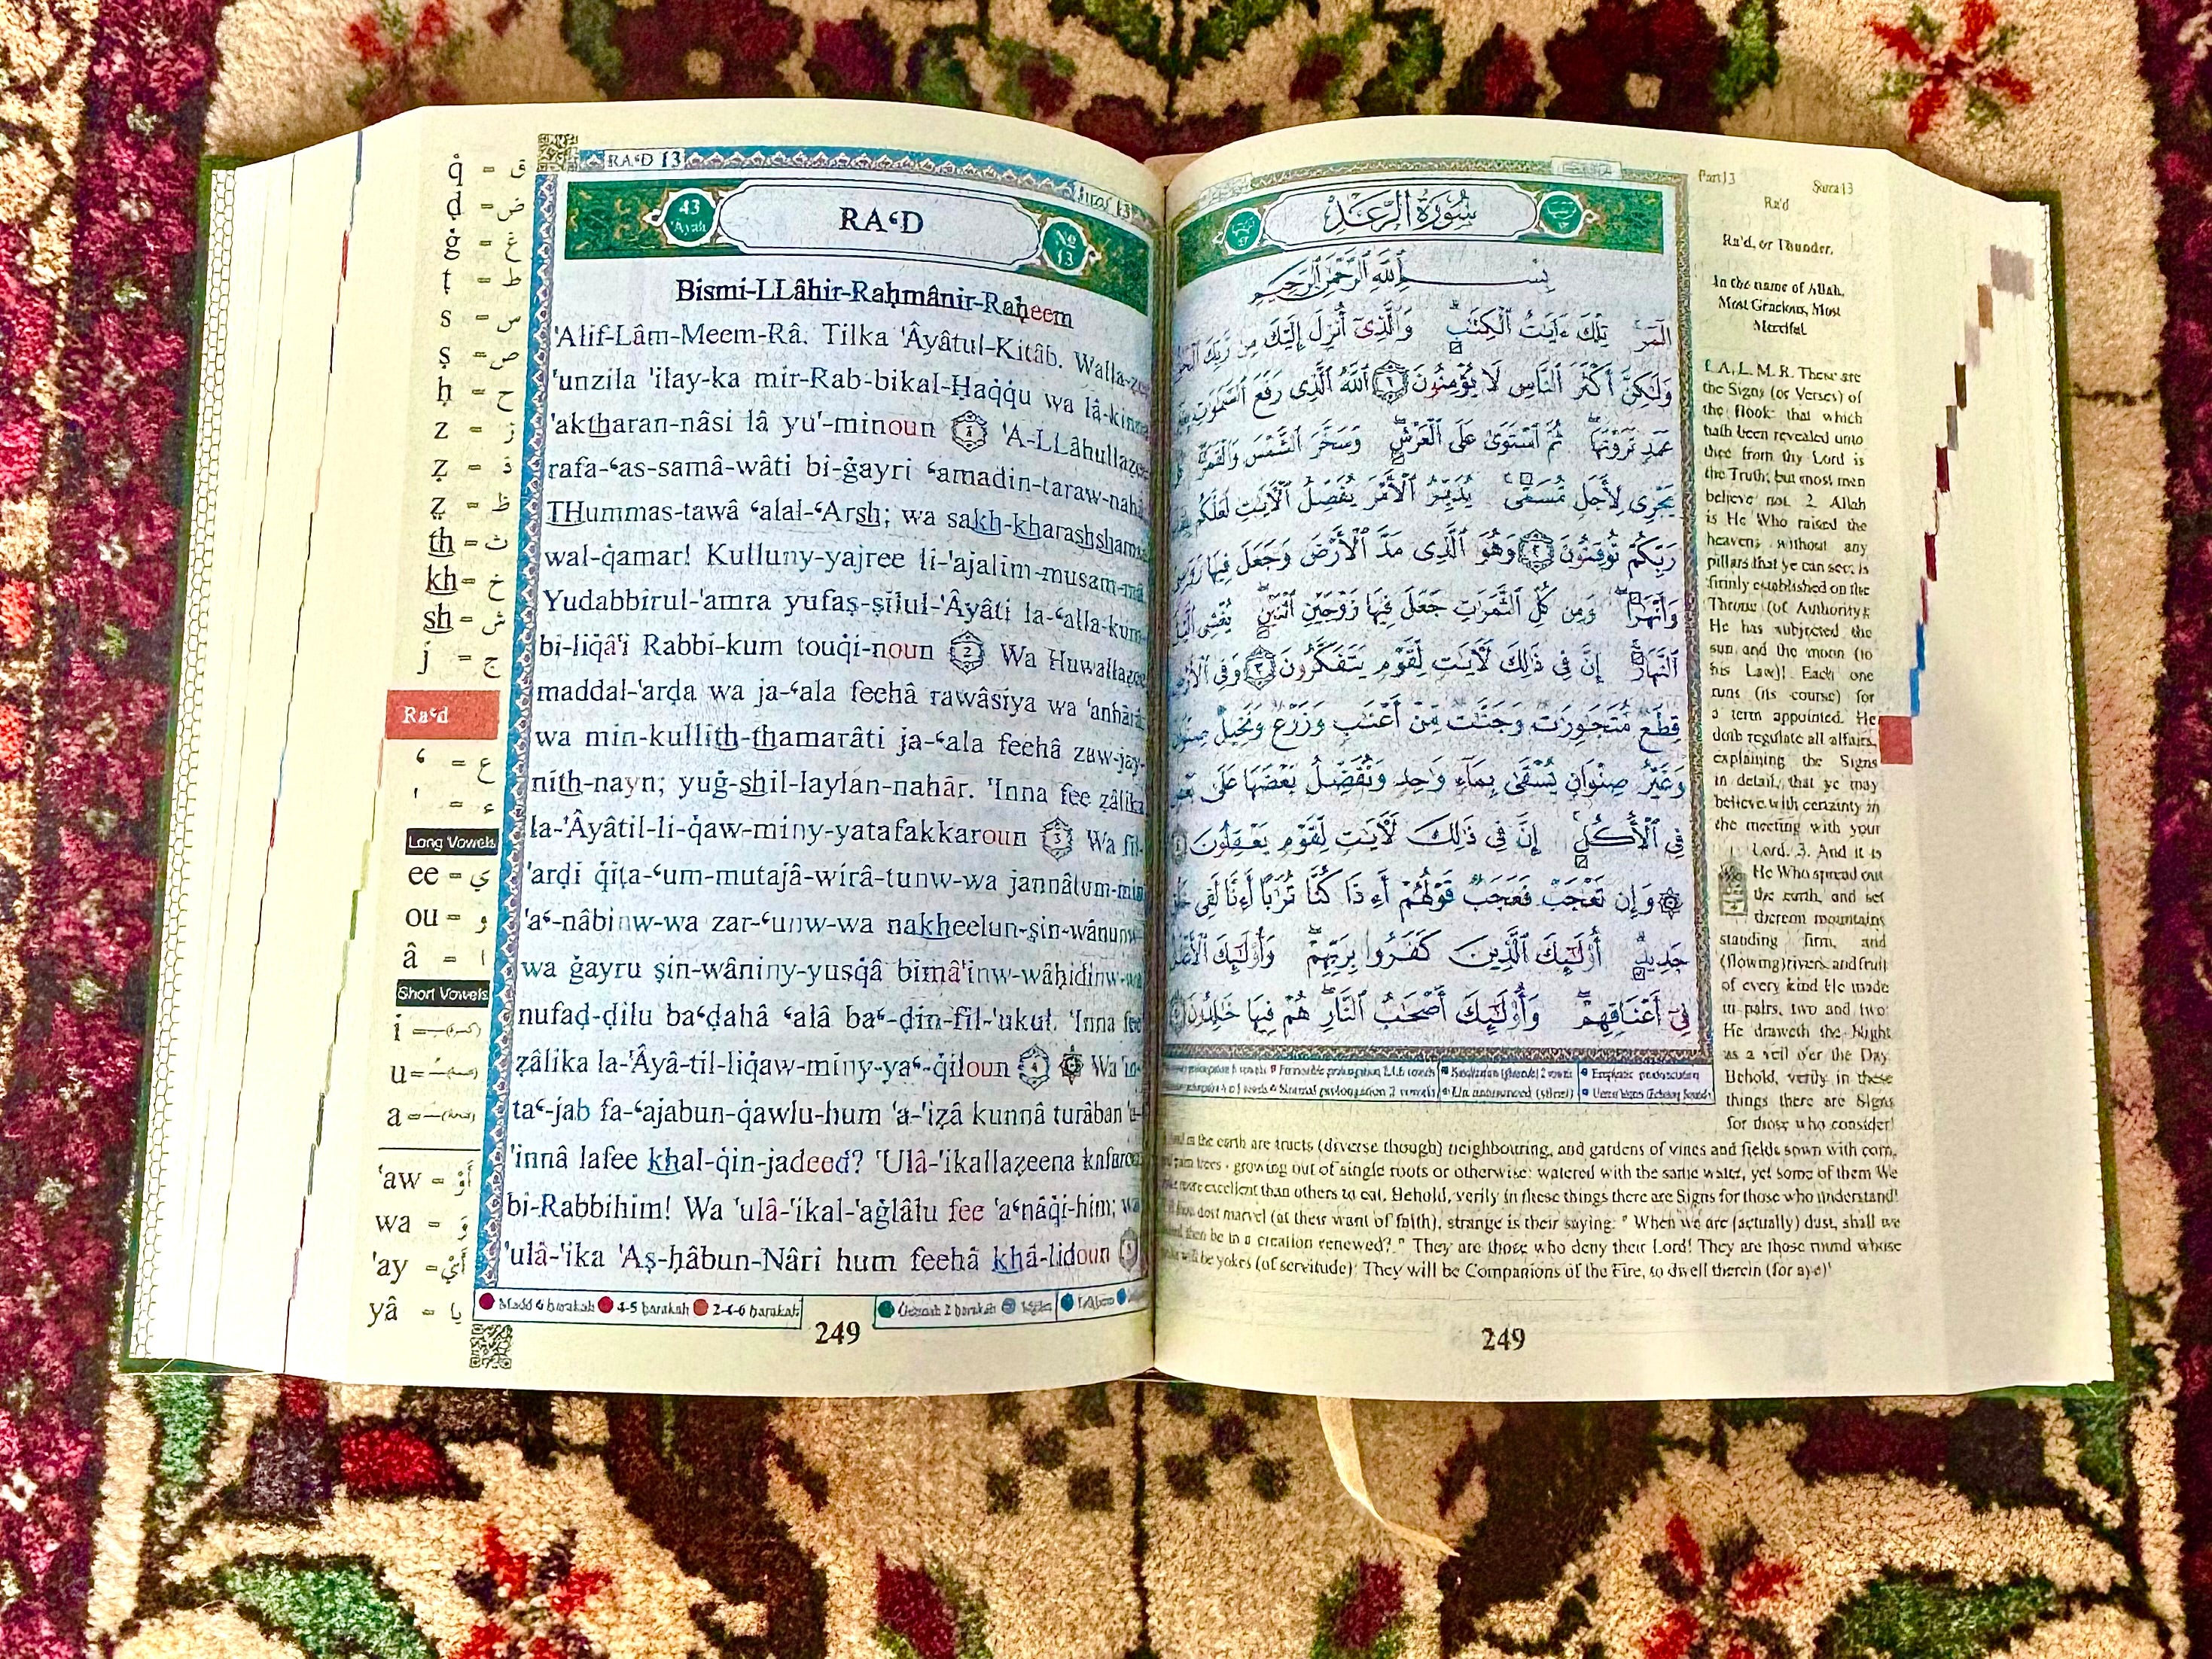 q̇ = ق
ḍ = ض
ġ = غ
ṭ = ط
s = س
ṣ = ص
ḥ = ح
z = ز
ẓ = ظ
th = ث
kh = خ
sh = ش
j = ج
Ra‘d
‘ = ع
' = ء
Long Vowels
ee = ي
ou = و
â = ا
Short Vowels
i =
u =
a =
'aw = أَوْ
wa = وَ
'ay = أَيْ
yâ = يا
RA‘D 13
43
'Ayah
RA‘D
№
13
Bismi-LLâhir-Raḥmânir-Raḥeem
'Alif-Lâm-Meem-Râ. Tilka 'Âyâtul-Kitâb.
'unzila 'ilay-ka mir-Rab-bikal-Ḥaq̇q̇u wa lâ-kinna
'aktharan-nâsi lâ yu'-minoun 1 'A-LLâhullaẓee
rafa-‘as-samâ-wâti bi-ġayri ‘amadin-taraw-nahâ
THummas-tawâ ‘alal-‘Arsh; wa sakh-kharashshamsa
wal-q̇amar! Kulluny-yajree li-'ajalim-musam-mâ
Yudabbirul-'amra yufaṣ-ṣilul-'Âyâti la-‘alla-kum
bi-liq̇â'i Rabbi-kum touq̇i-noun 2 Wa Huwallaẓee
maddal-'arḍa wa ja-‘ala feehâ rawâsiya wa 'anhârâ
wa min-kullith-thamarâti ja-‘ala feehâ zaw-jay-
nith-nayn; yuġ-shil-laylan-nahâr. 'Inna fee ẓâlika
la-'Âyâtil-li-q̇aw-miny-yatafakkaroun 3 Wa fil-
'arḍi q̇iṭa-‘um-mutajâ-wirâ-tunw-wa jannâtum-min
'a‘-nâbinw-wa zar-‘unw-wa nakheelun-ṣin-wânunw-
wa ġayru ṣin-wâniny-yusq̇â bimâ'inw-wâḥidinw-wa
nufaḍ-ḍilu ba‘ḍahâ ‘alâ ba‘-ḍin-fil-'ukul. 'Inna fee
ẓâlika la-'Âyâ-til-liq̇aw-miny-ya‘-q̇iloun 4 Wa 'in-
ta‘-jab fa-‘ajabun-q̇awlu-hum 'a-'iẓâ kunnâ turâban 'a-
'innâ lafee khal-q̇in-jadeed? 'Ulâ-'ikallaẓeena kafarou
bi-Rabbihim! Wa 'ulâ-'ikal-'aġlâlu fee 'a‘nâq̇i-him; wa
'ulâ-'ika 'Aṣ-ḥâbun-Nâri hum feehâ khâ-lidoun 5
Madd 6 harakah 4-5 harakah 2-4-6 harakah
249
سُورَةُ الرَّعْدِ
بِسْمِ اللَّهِ الرَّحْمَٰنِ الرَّحِيمِ
الٓمٓرۚ تِلْكَ ءَايَٰتُ ٱلْكِتَٰبِۗ وَٱلَّذِىٓ أُنزِلَ إِلَيْكَ مِن رَّبِّكَ ٱلْحَقُّ
وَلَٰكِنَّ أَكْثَرَ ٱلنَّاسِ لَا يُؤْمِنُونَ ١ ٱللَّهُ ٱلَّذِى رَفَعَ ٱلسَّمَٰوَٰتِ
عَمَدٍ تَرَوْنَهَاۖ ثُمَّ ٱسْتَوَىٰ عَلَى ٱلْعَرْشِۖ وَسَخَّرَ ٱلشَّمْسَ وَٱلْقَمَرَۖ
يَجْرِى لِأَجَلٍ مُّسَمًّىۚ يُدَبِّرُ ٱلْأَمْرَ يُفَصِّلُ ٱلْءَايَٰتِ لَعَلَّكُم
رَبِّكُمْ تُوقِنُونَ ٢ وَهُوَ ٱلَّذِى مَدَّ ٱلْأَرْضَ وَجَعَلَ فِيهَا رَوَٰسِىَ
وَأَنْهَٰرًاۖ وَمِن كُلِّ ٱلثَّمَرَٰتِ جَعَلَ فِيهَا زَوْجَيْنِ ٱثْنَيْنِۖ يُغْشِى ٱلَّيْلَ
ٱلنَّهَارَۚ إِنَّ فِى ذَٰلِكَ لَءَايَٰتٍ لِّقَوْمٍ يَتَفَكَّرُونَ ٣ وَفِى ٱلْأَرْضِ
قِطَعٌ مُّتَجَٰوِرَٰتٌ وَجَنَّٰتٌ مِّنْ أَعْنَٰبٍ وَزَرْعٌ وَنَخِيلٌ صِنْوَانٌ
وَغَيْرُ صِنْوَانٍ يُسْقَىٰ بِمَآءٍ وَٰحِدٍ وَنُفَضِّلُ بَعْضَهَا عَلَىٰ بَعْضٍ
فِى ٱلْأُكُلِۚ إِنَّ فِى ذَٰلِكَ لَءَايَٰتٍ لِّقَوْمٍ يَعْقِلُونَ ٤
وَإِن تَعْجَبْ فَعَجَبٌ قَوْلُهُمْ أَءِذَا كُنَّا تُرَٰبًا أَءِنَّا لَفِى خَلْقٍ
جَدِيدٍۗ أُو۟لَٰٓئِكَ ٱلَّذِينَ كَفَرُوا۟ بِرَبِّهِمْۖ وَأُو۟لَٰٓئِكَ ٱلْأَغْلَٰلُ
فِىٓ أَعْنَاقِهِمْۖ وَأُو۟لَٰٓئِكَ أَصْحَٰبُ ٱلنَّارِۖ هُمْ فِيهَا خَٰلِدُونَ ٥
Part 13
Sura 13
Ra'd
Ra'd, or Thunder.
In the name of Allah,
Most Gracious, Most
Merciful.
1. A. L. M. R. These are
the Signs (or Verses) of
the Book: that which
hath been revealed unto
thee from thy Lord is
the Truth; but most men
believe not. 2. Allah
is He Who raised the
heavens without any
pillars that ye can see; is
firmly established on the
Throne (of Authority);
He has subjected the
sun and the moon (to
his Law)! Each one
runs (its course) for
a term appointed. He
doth regulate all affairs,
explaining the Signs
in detail, that ye may
believe with certainty in
the meeting with your
Lord. 3. And it is
He Who spread out
the earth, and set
thereon mountains
standing firm, and
(flowing) rivers: and fruit
of every kind He made
in pairs, two and two:
He draweth the Night
as a veil o'er the Day.
Behold, verily in these
things there are Signs
for those who consider!
the earth are tracts (diverse though) neighbouring, and gardens of vines and fields sown with corn,
palm trees - growing out of single roots or otherwise: watered with the same water, yet some of them We
more excellent than others to eat. Behold, verily in these things there are Signs for those who understand!
dost marvel (at their want of faith), strange is their saying: " When we are (actually) dust, shall we
then be in a creation renewed? " They are those who deny their Lord! They are those round whose
will be yokes (of servitude): They will be Companions of the Fire, to dwell therein (for aye)!
249